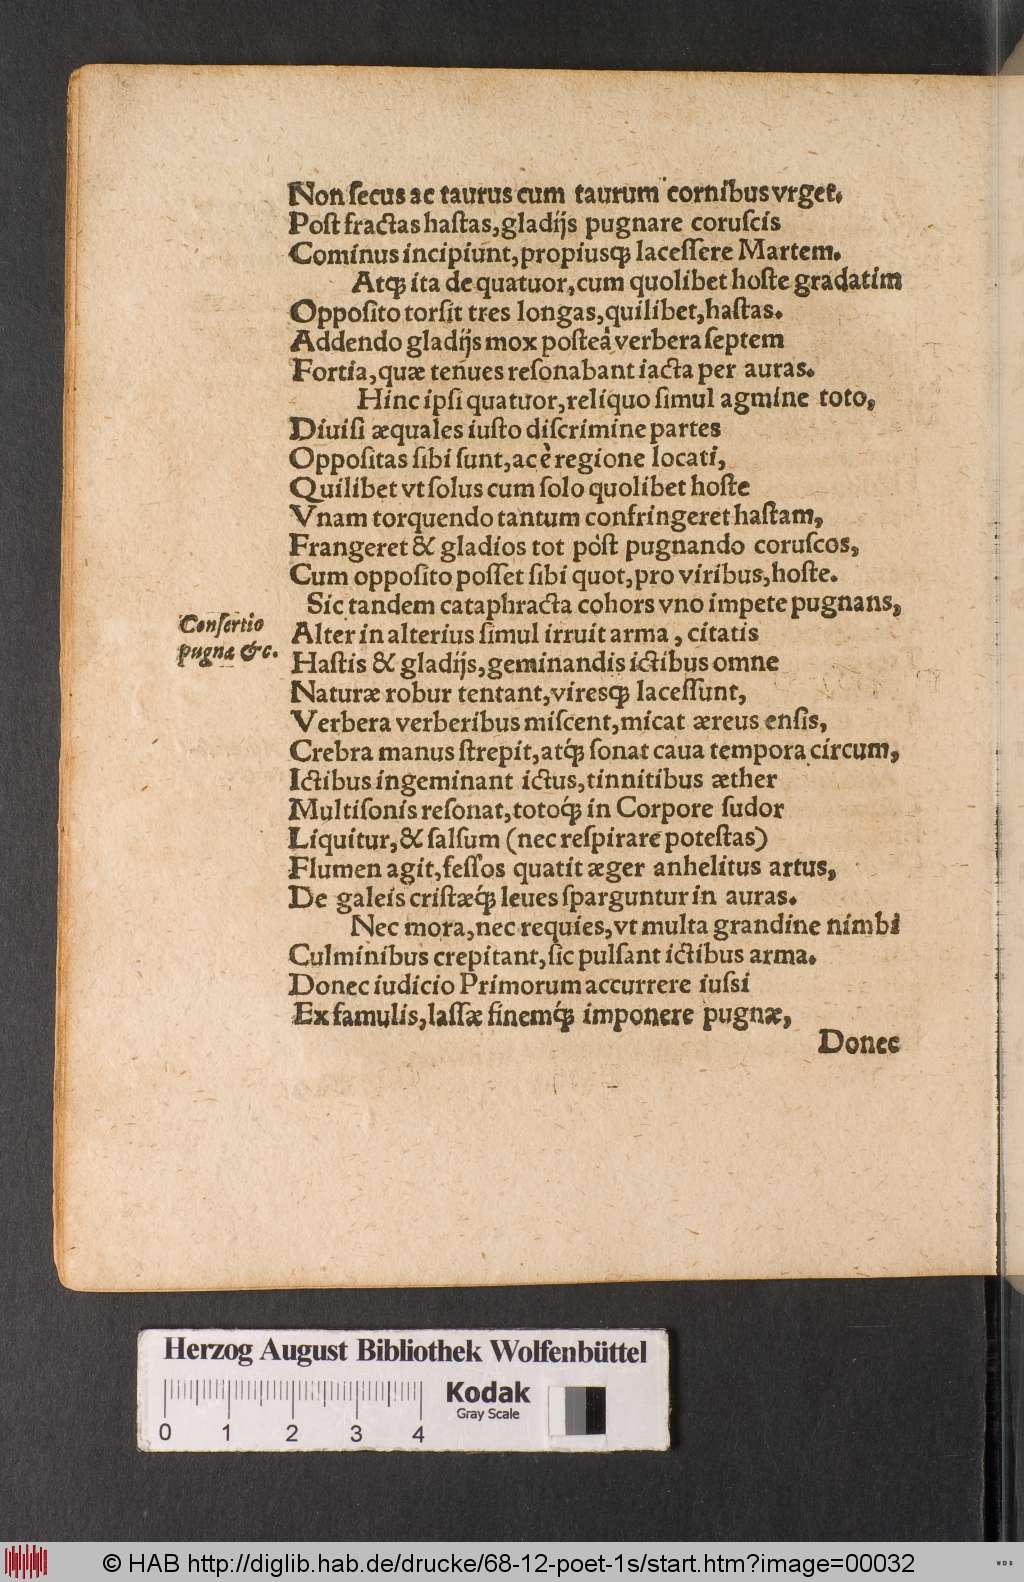 Non ſecus ac taurus cum taurum cornibus vrget.
Poſt fractas haſtas, gladijs pugnare coruſcis
Cominus incipiunt, propiusq́; laceſſere Martem.
Atq́; ita de quatuor, cum quolibet hoſte gradatim
Oppoſito torſit tres longas, quilibet, haſtas.
Addendo gladijs mox poſteà verbera ſeptem
Fortia, quæ tenues reſonabant iacta per auras.
Hinc ipſi quatuor, reliquo ſimul agmine toto,
Diuiſi æquales iuſto diſcrimine partes
Oppoſitas ſibi ſunt, ac è regione locati,
Quilibet vt ſolus cum ſolo quolibet hoſte
Vnam torquendo tantum confringeret haſtam,
Frangeret & gladios tot pòſt pugnando coruſcos,
Cum oppoſito poſſet ſibi quot, pro viribus, hoſte.
Sic tandem cataphracta cohors vno impete pugnans,
Conſertio
pugnæ &c.
Alter in alterius ſimul irruit arma, citatis
Haſtis & gladijs, geminandis ictibus omne
Naturæ robur tentant, viresq́; laceſſunt,
Verbera verberibus miſcent, micat æreus enſis,
Crebra manus ſtrepit, atq́; ſonat caua tempora circum,
Ictibus ingeminant ictus, tinnitibus æther
Multiſonis reſonat, totoq́; in Corpore ſudor
Liquitur, & ſalſum (nec reſpirare poteſtas)
Flumen agit, feſſos quatit æger anhelitus artus,
De galeis criſtæq́; leues ſparguntur in auras.
Nec mora, nec requies, vt multa grandine nimbi
Culminibus crepitant, ſic pulſant ictibus arma.
Donec iudicio Primorum accurrere iuſsi
Ex famulis, laſſæ finemq́; imponere pugnæ,
Donec
Herzog August Bibliothek Wolfenbüttel
Kodak
Gray Scale
0 1 2 3 4
© HAB http://diglib.hab.de/drucke/68-12-poet-1s/start.htm?image=00032